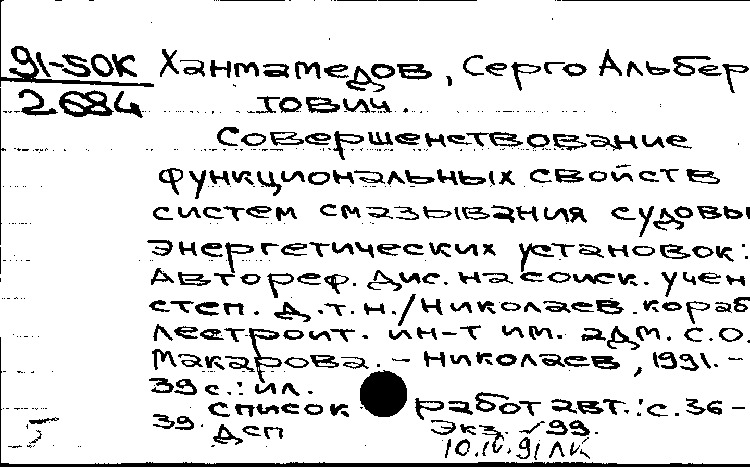 91-50К
2684
Ханмамедов, Серго Альбер
тович.
Совершенствование
функциональных свойств
систем смазывания судовы
энергетических установок:
Автореф. дис. на соиск. учен
степ. д.т.н./Николаев. кораб
лестроит. ин-т им. адм. С.О.
Макарова. – Николаев, 1991. –
39 с.: ил.
Список работ авт.: с. 36 –
39.
ДСП Экз. 99.
5 10.IV.91 ЛК